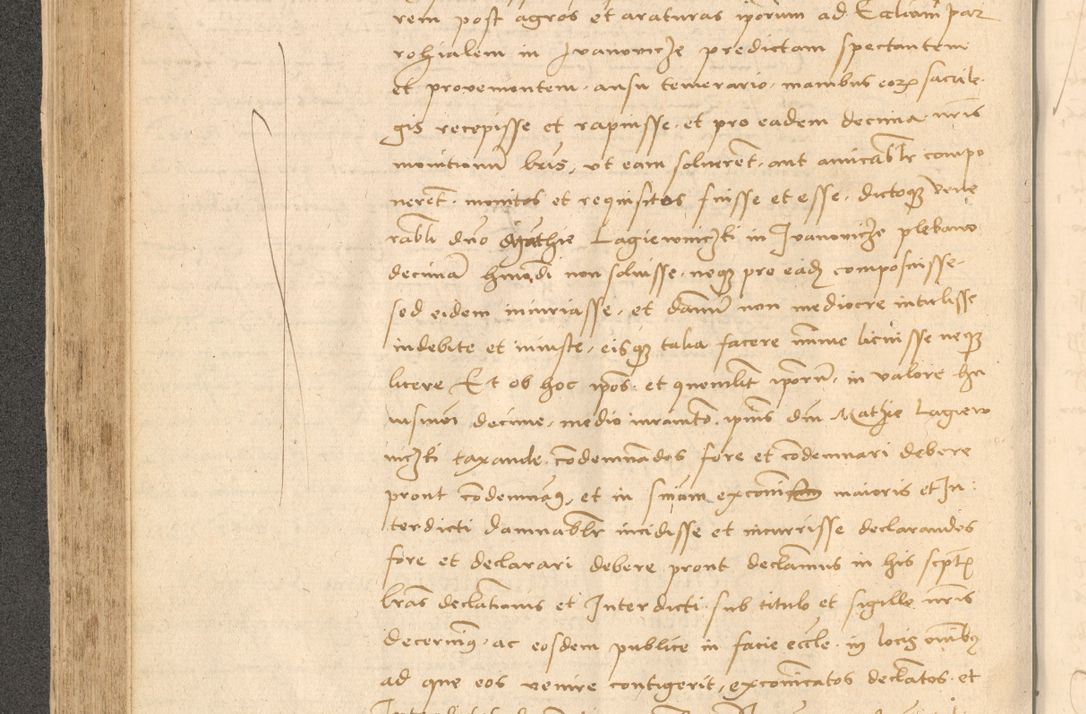 rem post agros et araturas iporum ad Eccliam par
rohialem in Ivanovicze predictam spectantem
et provenientem, ausu temerario, manibus eorum sacrile
gis recepisse et rapuisse, et pro eadem decima nris
monitionum lris, ut eam solverēt, aut amicablr compo
nerēt, monitos et requisitos fuisse et esse, dictoque vene
rabli dno Mathie Lagiewniczki in Ivanovicze plebano
decimā hmodi non solvisse, neque pro eadem composuisse,
sed eidem iniuriasse, et damnū non mediocre intulisse
indebite et iniuste, eisque talia facere mīme licuisse neque
licere Et ob hoc ipos et quemlibt iporum, in valore hu
iusmōi decime, medio iuramēto ipius dni Mathie Lagiew
niczki taxande condemnādos fore et condemnari debere
prout condemnamus, et in sniam exconis maioris et In:
terdicti damnablr incidisse et incurrisse declarandos
fore et declarari debere prout declamus in his scptis
lras declationis et Interdicti sub titulo et sigillo nris
decernimus, ac eosdem publice in facie eccle in locis omibus
ad que eos venire contigerit, exconicatos declatos et